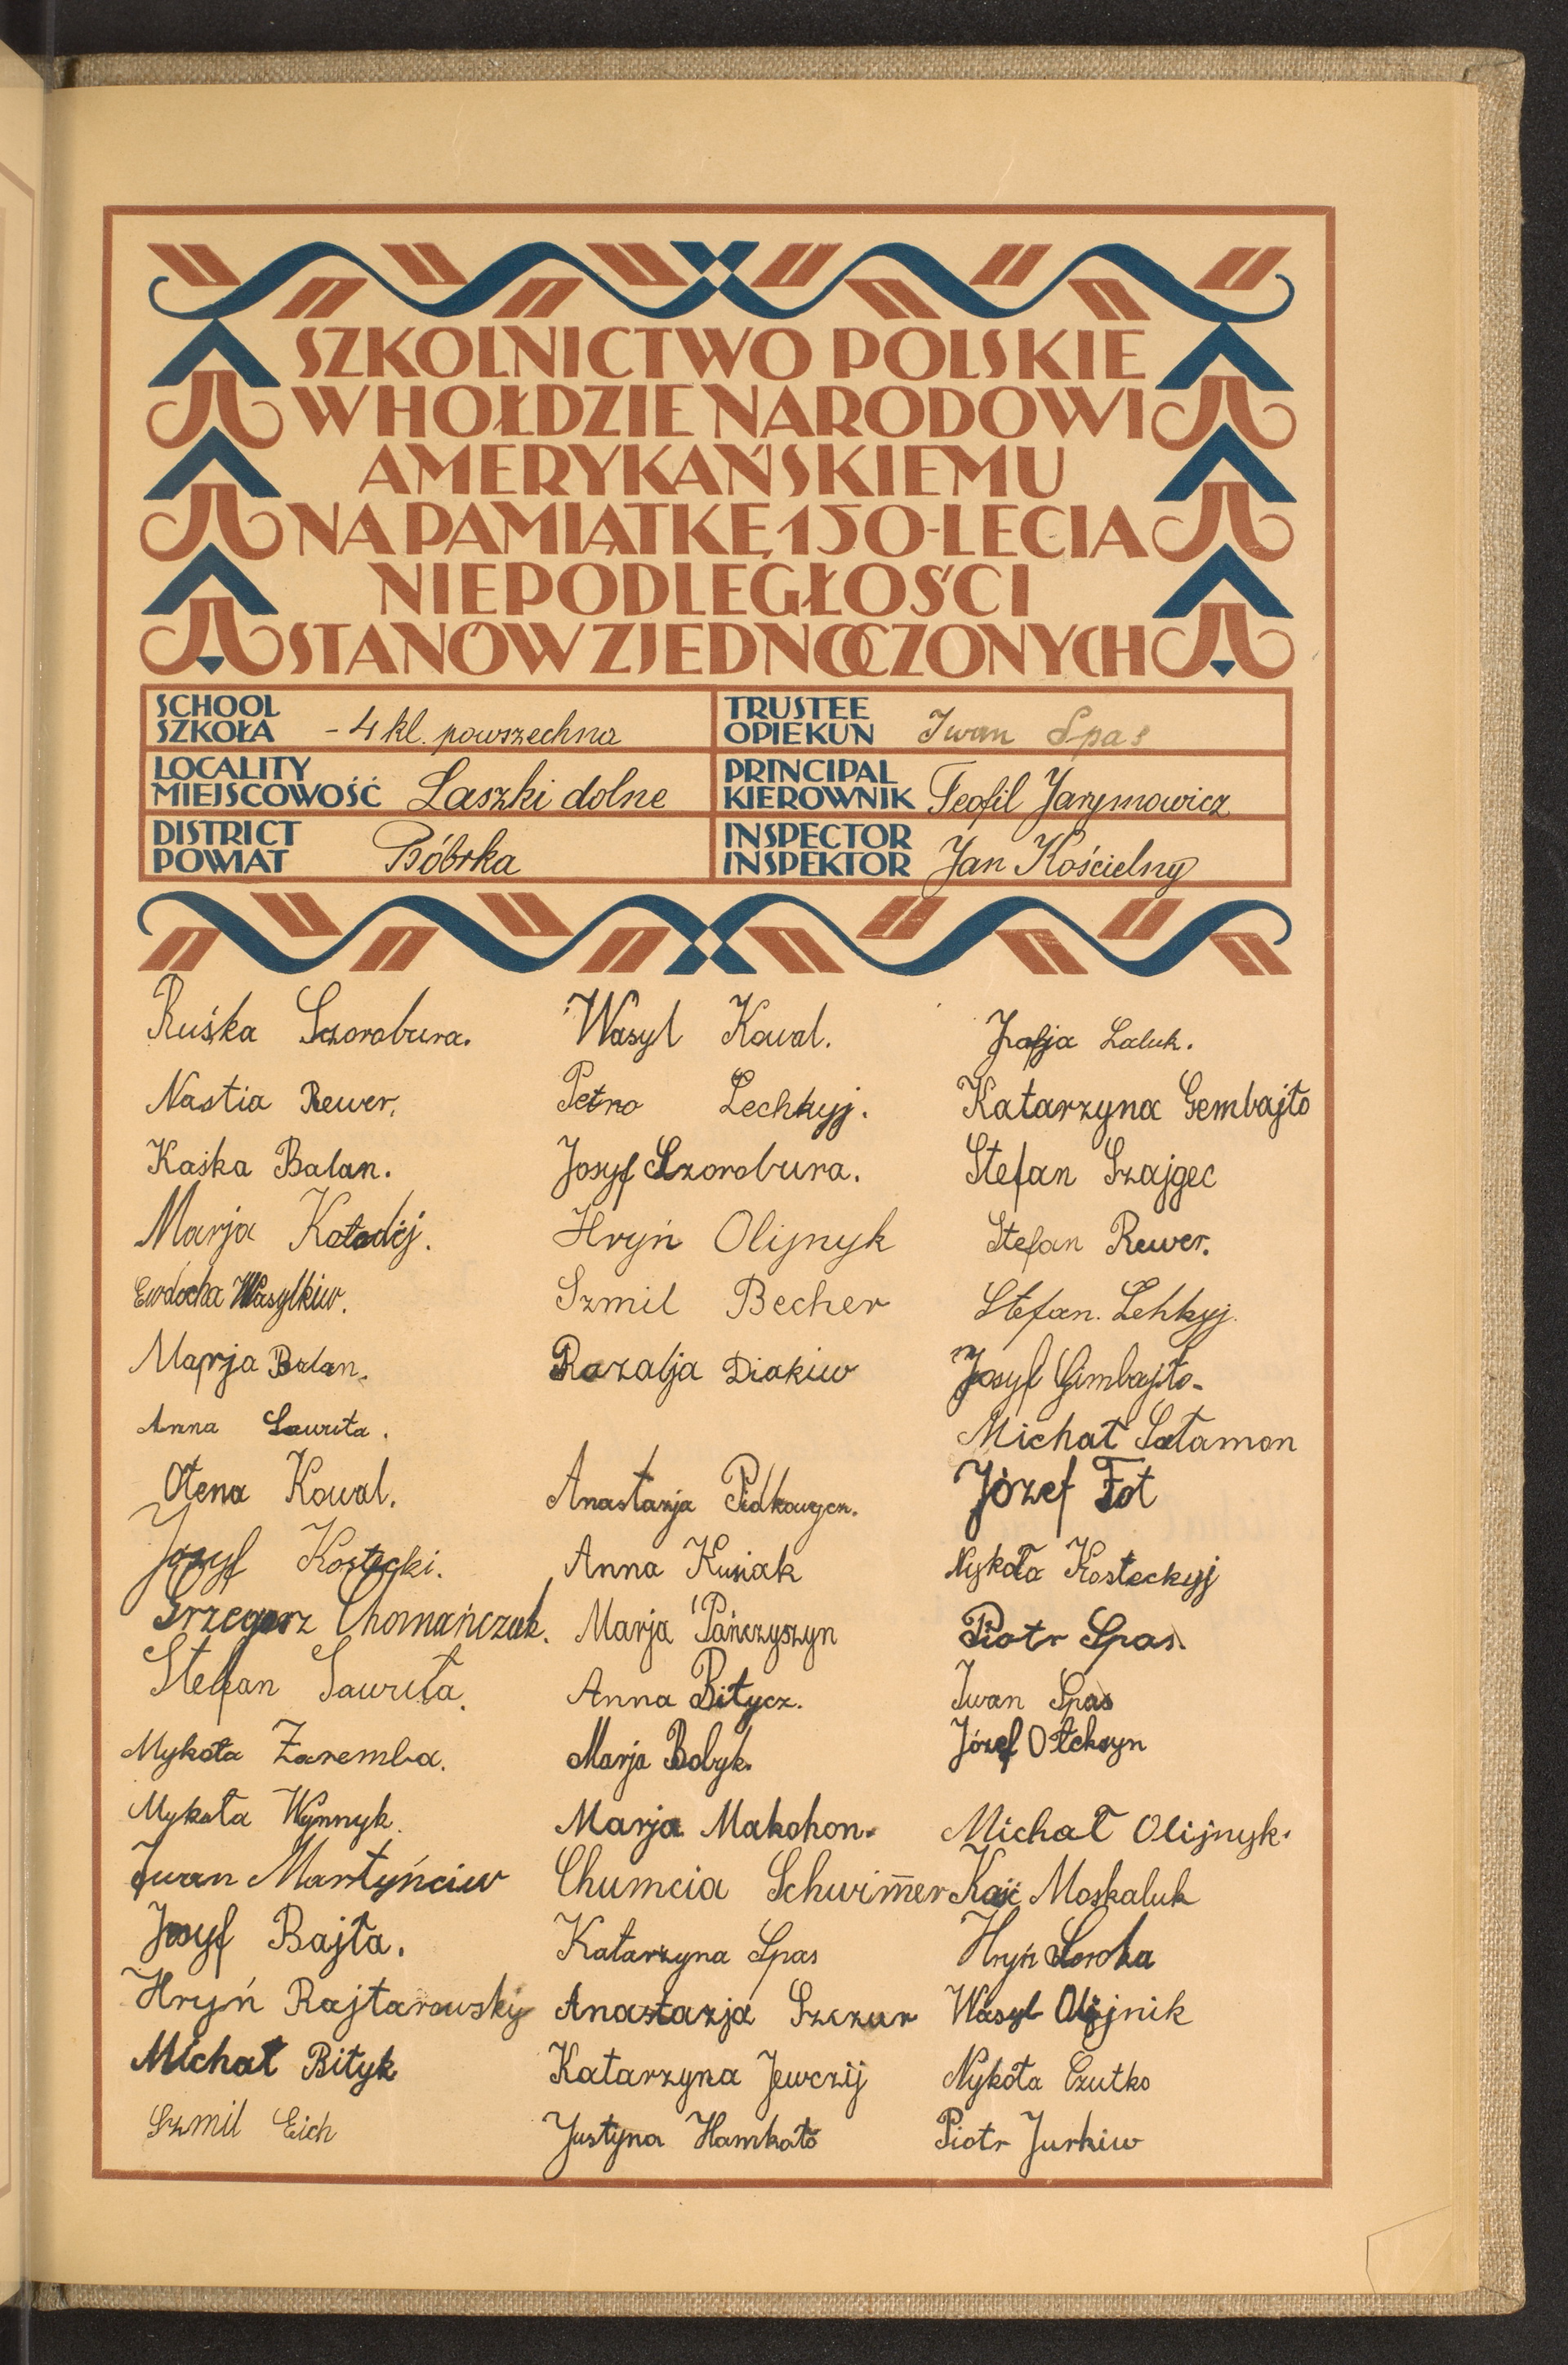 SZKOLNICTWO POLSKIE
W HOŁDZIE NARODOWI
AMERYKAŃSKIEMU
NA PAMIĄTKĘ 150-LECIA
NIEPODLEGŁOŚCI
STANÓW ZJEDNOCZONYCH
SCHOOL
SZKOŁA - 4 kl. powszechna
LOCALITY
MIEJSCOWOŚĆ Laszki dolne
DISTRICT
POWIAT Bóbrka
TRUSTEE
OPIEKUN Iwan Spas
PRINCIPAL
KIEROWNIK Teofil Jarymowicz
INSPECTOR
INSPEKTOR Jan Kościelny
Ruśka Szorobura.
Nastia Rewer.
Kaśka Balan.
Marja Kołodij.
Ewdocha Wasylkiw.
Marja Balan.
Anna Sawuła.
Ołena Kowal.
Jozyf Kostecki.
Grzegorz Chomańczuk.
Stefan Sawuła.
Mykoła Zaremba.
Mykoła Wynnyk.
Iwan Martyńciw
Josyf Bajła.
Hryń Rajtarowskij
Michał Bityk
Szmil Eich
Wasyl Kowal.
Petro Lechkyj.
Josyf Szorobura.
Hryń Olijnyk
Szmil Becher
Rozalja Diakiw
Anastazja
Anna Kusiak
Marja Pańczyszyn
Anna Bitycz.
Marja Bobyk.
Marja Makohon.
Chumcia Schwim̅er
Katarzyna Spas
Anastazja Szczur
Katarzyna Jewczij
Justyna Hamkało
Zofja Laluk.
Katarzyna Gembajło
Stefan Szajgec
Stefan Rewer.
Stefan. Lehkyj.
Josyf Gimbajło.
Michał Sałamon
Józef Fot
Nykoła Kosteckyj
Piotr Spas.
Iwan Spas
Józef
Michał Olijnyk.
Kaść Moskaluk
Hryń Soroka
Wasyl Olijnik
Nykoła Czutko
Piotr Jurkiw